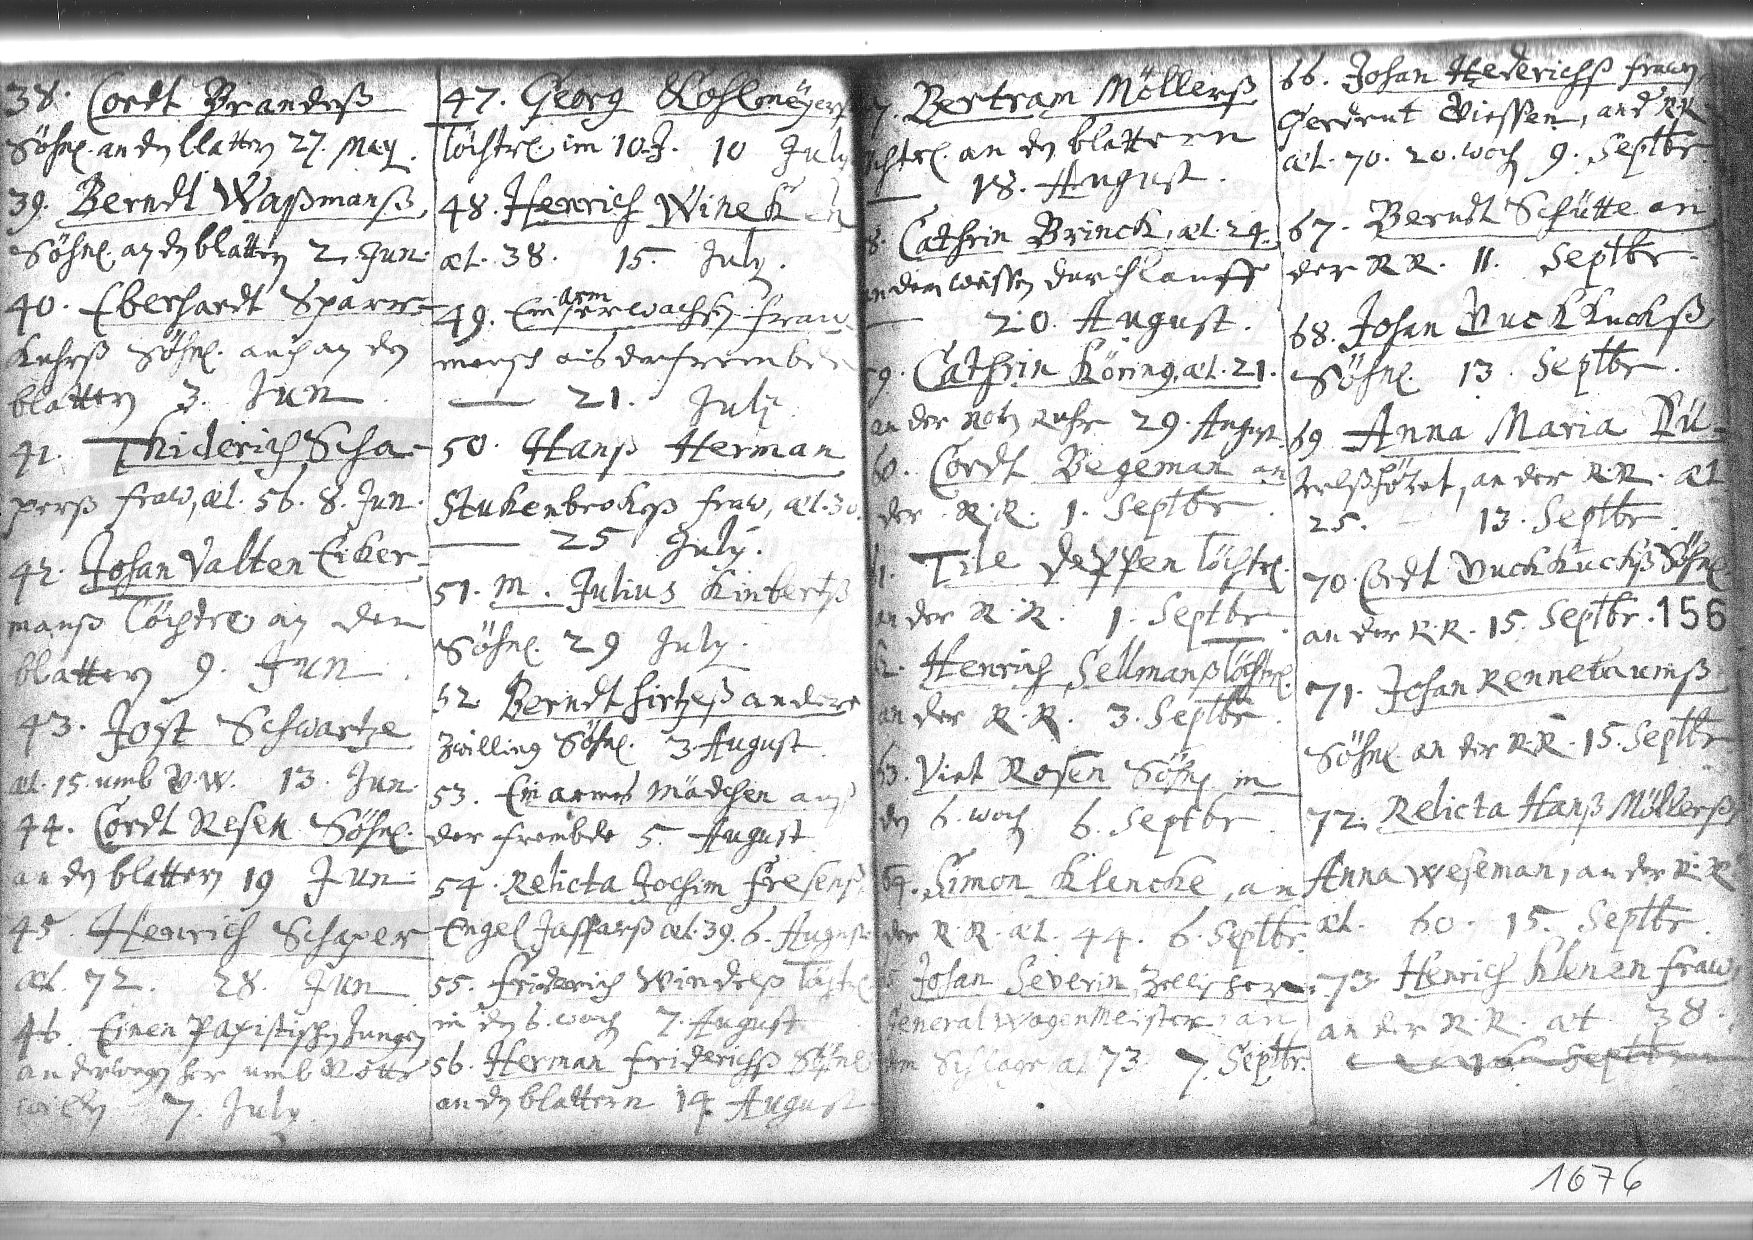 38. Cordt Brandeß
Söhnl. an dn blattern 27. May.
39. Berndt Waßmanß
Söhnl. an dn blattern 2. Jun.
40. Eberhardt Sparr-
Söhnl. auch an dn
blattern 3. Jun
41. Thiderich Scha-
perß fraw, æt. 56. 8. Jun.
42. Johan Valten Eiker-
manß Töchterl. an den
blattern 9. Jun.
43. Jost Schwartze
æt. 15. umb V. W. 13. Jun.
44. Cordt Resen Söhnl.
an dn blattern 19 Jun.
45. Henrich Schaper
æt. 72. 28. Jun
46. Einen Papistischn Jungen
umb
7. July
47. Georg Kohlmeyerß
Töchterl. im 10. J. 10 July
48. Henrich Wineken
æt. 38. 15. July.
49. Ein arm erwachsen
mensch aus der frembde
21. July
50. Hanß Herman
Stukenbrokß fraw, æt. 30.
25 July.
51. M. Julius Kinbertß
Söhnl. 29 July.
52 Berndt Hirtzeß andere
Zwilling Söhnl. 3 August
53. Ein armes Mädchen auß
der frembde 5. August
54. Relicta Jochim Fresenß
Engel æt. 39. 6. August
55. Friderich Windelß Töchterl.
in dn 6. woch 7. August
56. Herman Friderichß Söhnl.
an dn blattern 14. August
7. Bertram Möllerß
chterl. an dn blattern
18. August.
8. Cathrin Brinck, æt. 24.
an dem weissen durchlauff
20. August.
9. Cathrin Köring, æt. 21.
an der Rotn Ruhr 29. August
60. Cordt Begeman an
der R. R. 1. Septbr.
1. Tile Deppen Töchterl.
an der R. R. 1. Septbr.
2. Henrich Sellmanß Töchterl.
an der R. R. 3. Septbr.
63. Viet Rosen Söhnl. in
dn 6. woch 6. Septbr.
64. Simon Klencke, an
der R. R. æt. 44. 6. Septbr.
Johan Severin
General WagenMeister, an
Schlage æt 73. 7. Septbr.
66. Johan Hederichß fraw
Gerdrut Viessen, an d. RR
æt. 70. 20. woch 9. Septbr.
67. Berndt Schütte an
der R R. 11. Septbr.
68. Johan Kuckkuckß
Söhnl. 13. Septbr.
69 Anna Maria
an der R. R. æt
25. 13. Septbr.
70. Cordt Kuckkuckß Söhnl.
an der R. R. 15. Septbr.
156
71. Johan Rennebaumß
Söhnl. an der R. R. 15. Septbr
72. Relicta Hanß Möllerß
Anna Weseman, an der R. R
æt. 60. 15. Septbr.
73. Henrich Klenen fraw,
an der R. R. æt 38.
1676